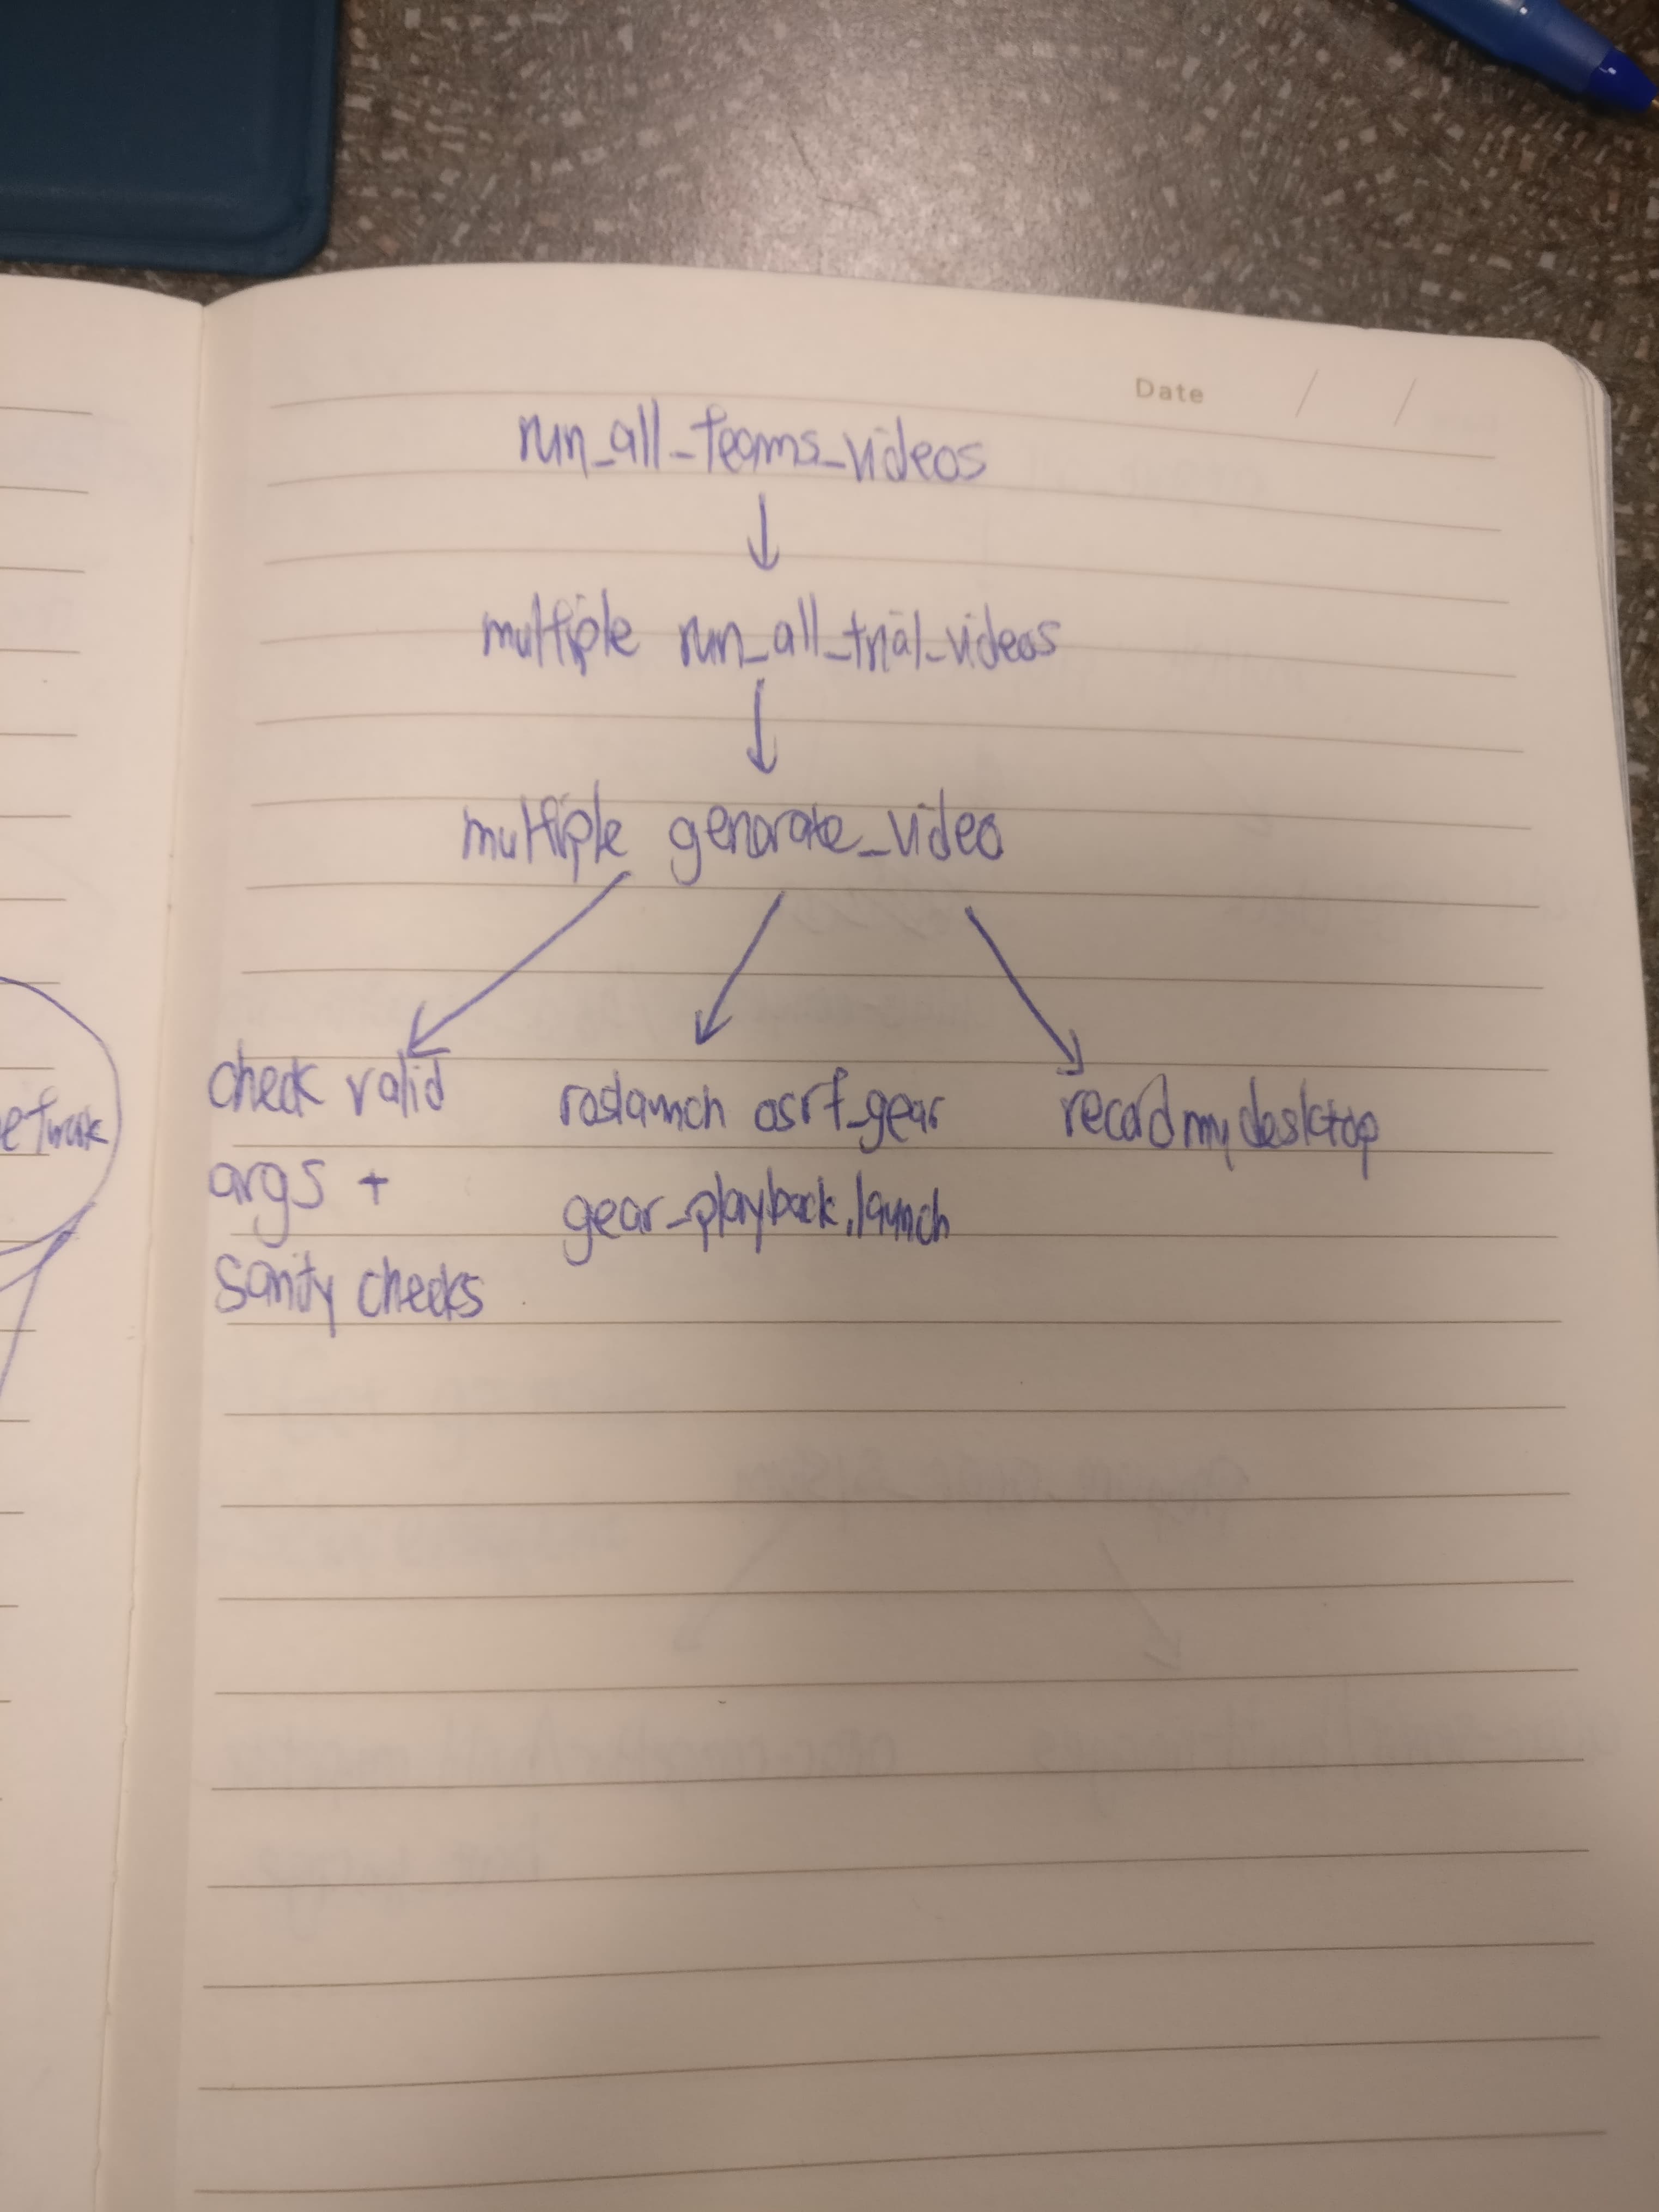 Date / /
run_all_teams_videos
multiple run_all_trial_videos
multiple generate_video
check valid
args +
sanity checks
roslaunch osrf_gear
gear_playback.launch
recordmydesktop